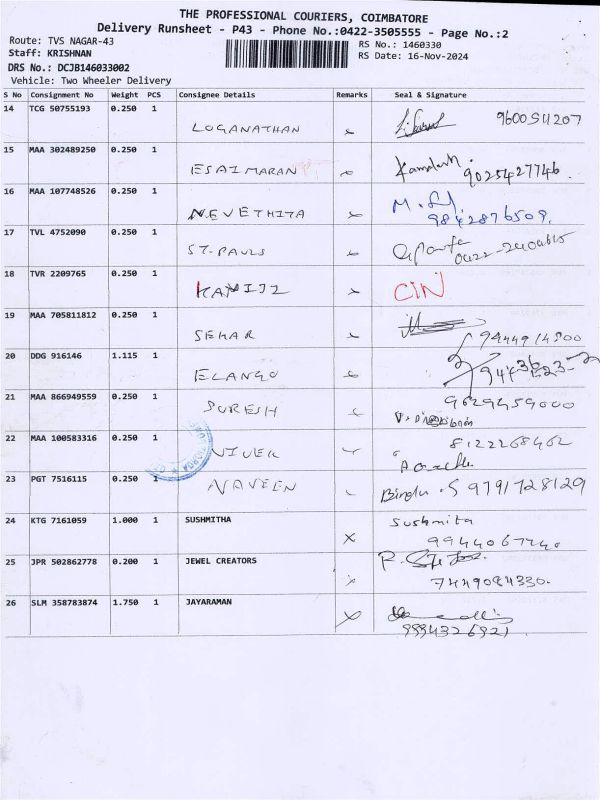 THE PROFESSIONAL COURIERS, COIMBATORE
Delivery Runsheet - P43 - Phone No.:0422-3505555 - Page No.:2
Route: TVS NAGAR-43
RS No.: 1460330
Staff: KRISHNAN
RS Date: 16-Nov-2024
DRS No.: DCJB146033002
Vehicle: Two Wheeler Delivery
S No Consignment No Weight PCS Consignee Details Remarks Seal & Signature
14 TCG 50755193 0.250 1
LOGANATHAN
15 MAA 302489250 0.250 1
ESAIMARAN Kamalesh. 9025427746.
16 MAA 107748526 0.250 1
NEVETHITA 9842876509.
17 TVL 4752090 0.250 1
ST. PAULS
18 TVR 2209765 0.250 1
CIN
19 MAA 705811812 0.250 1
SEKAR 9444914500
20 DDG 916146 1.115 1
ELANGO
21 MAA 866949559 0.250 1
SURESH 9629459000
22 MAA 100583316 0.250 1
VIVEK 8122268462
23 PGT 7516115 0.250 1
NAVEEN Bindu.S 9791728129
24 KTG 7161059 1.000 1 SUSHMITHA Sushmita
9944067740
25 JPR 502862778 0.200 1 JEWEL CREATORS
7449084330.
26 SLM 358783874 1.750 1 JAYARAMAN
9994326921